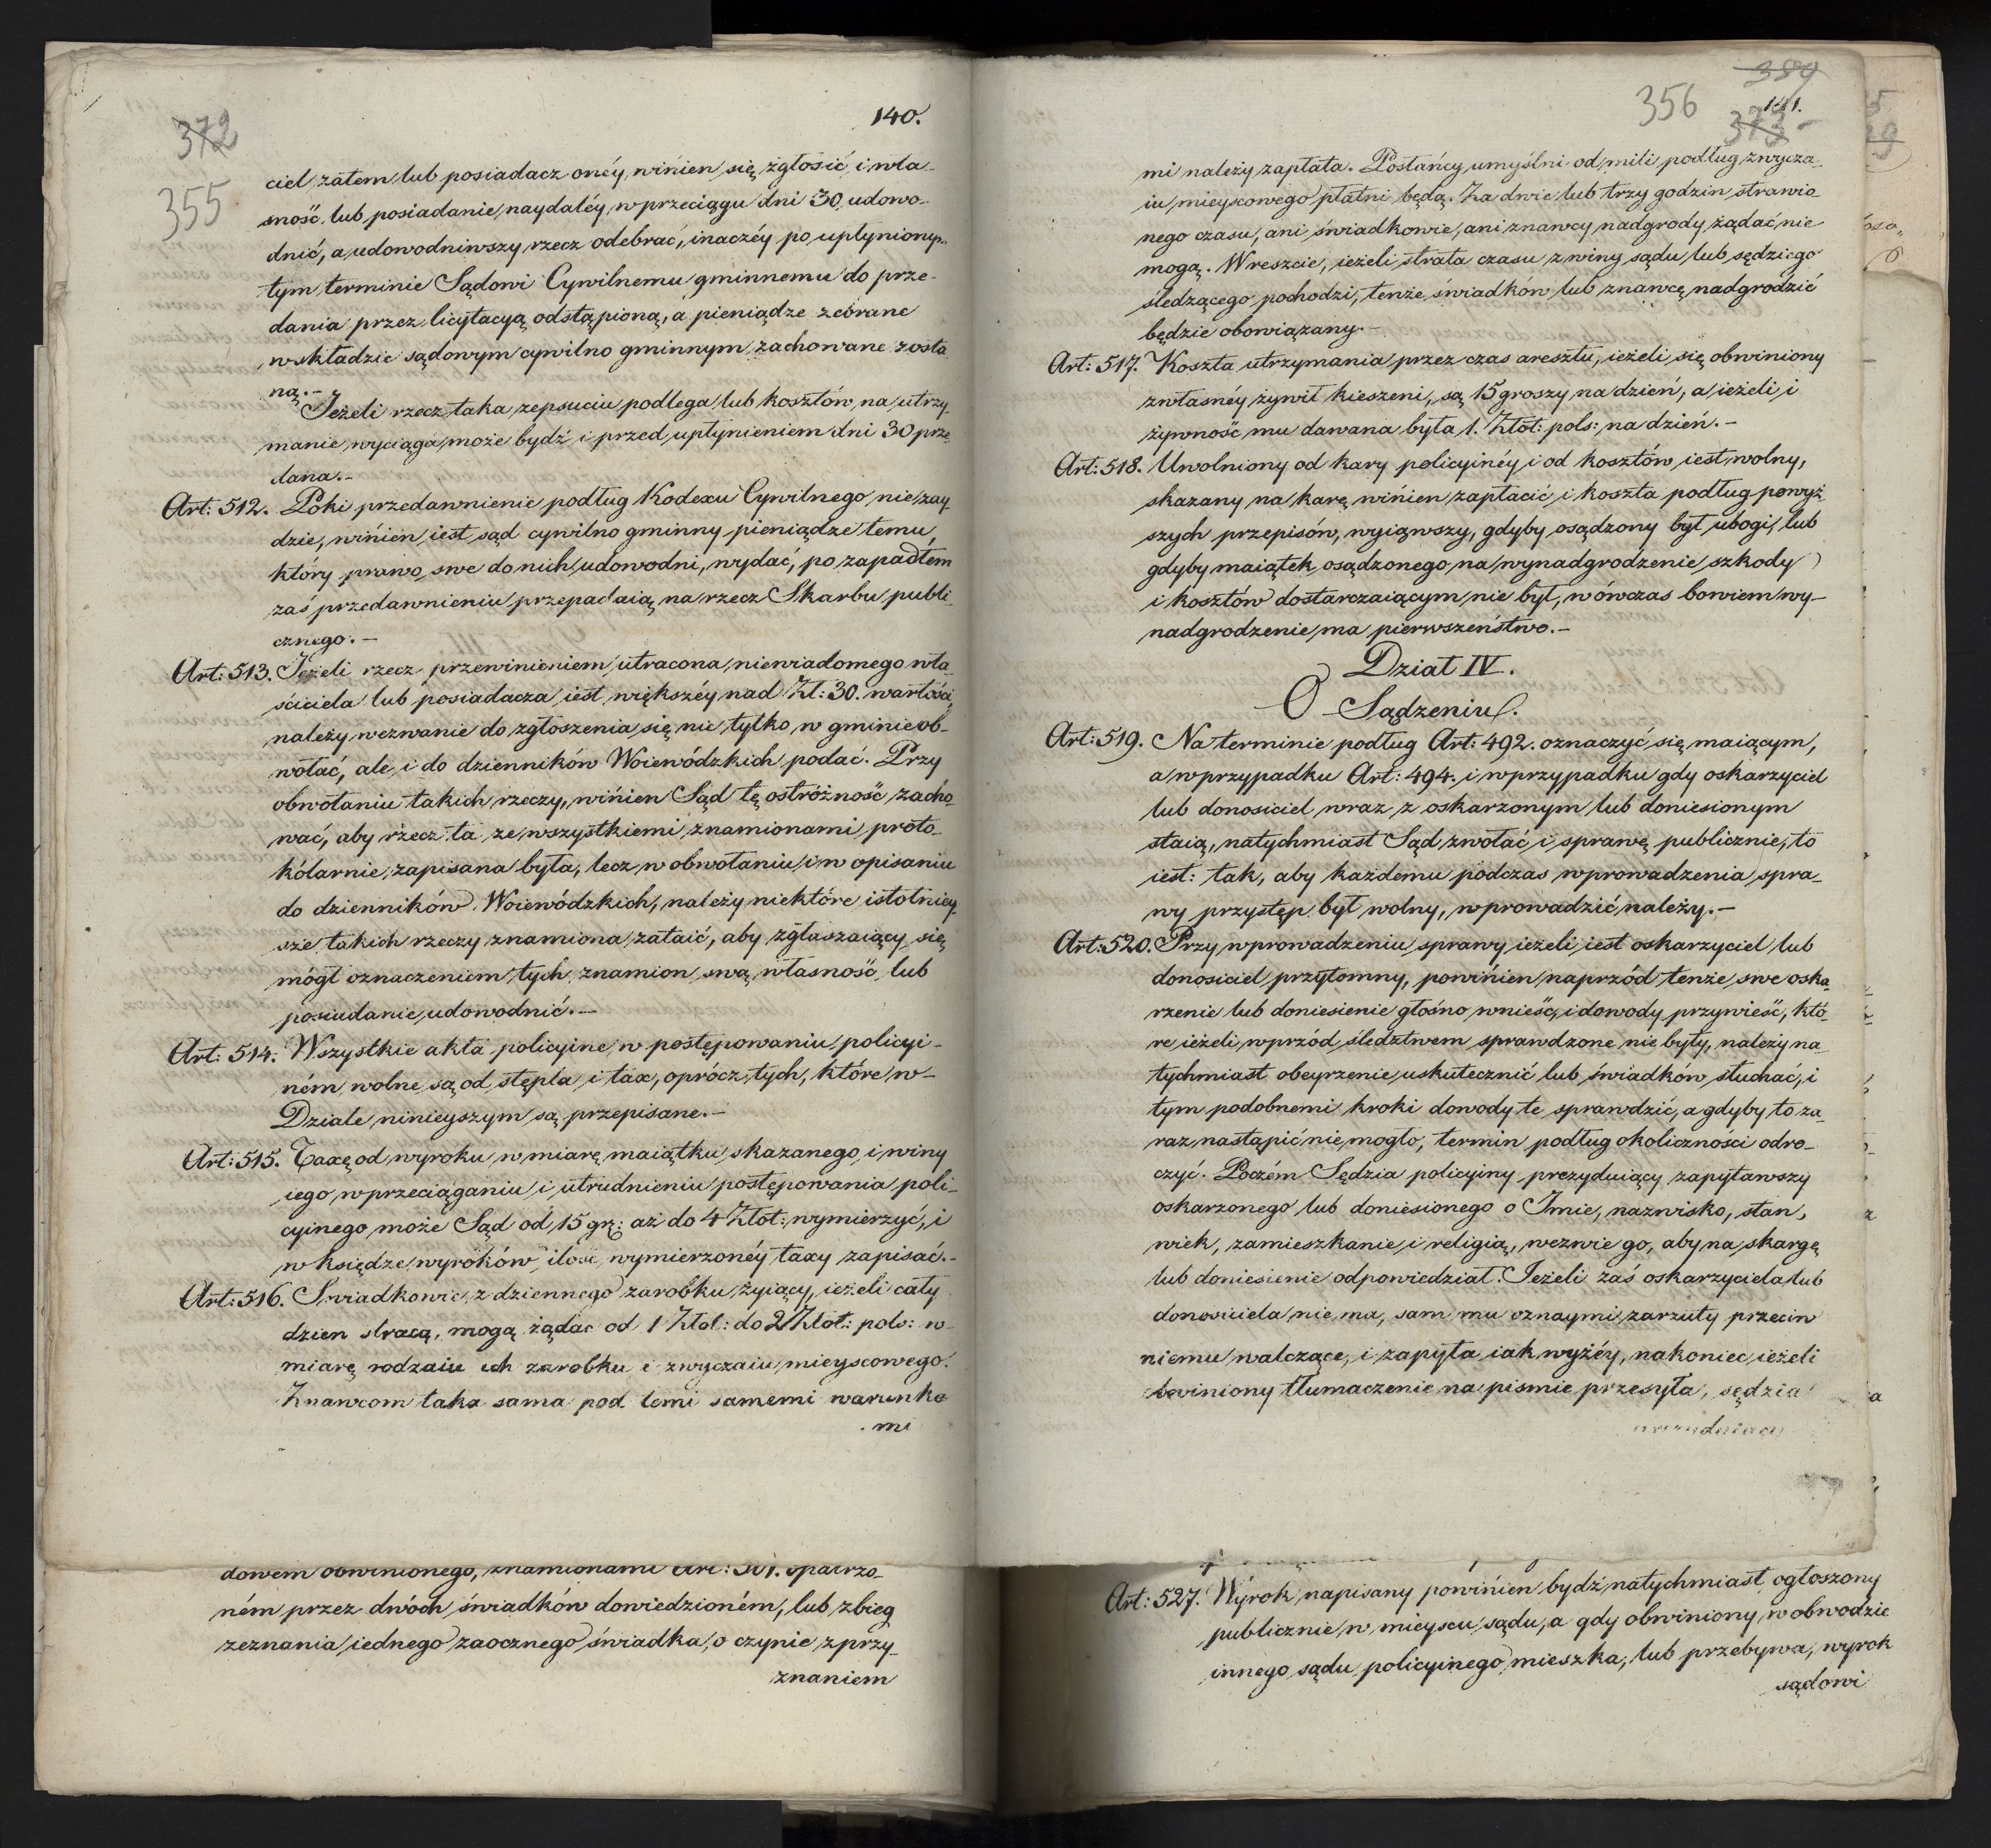 372
140.
355
ciel zatem lub posiadacz onéy winien się zgłosić i wła-
sność lub posiadanie naydaléy w przeciągu dni 30 udowo-
dnić, a udowodniwszy rzecz odebrać, inaczéy po upłyniony
tym terminie Sądowi Cywilnemu gminnemu do prze-
dania przez licytacyą odstąpioną, a pieniądze zebrane
w składzie sądowym cywilno gminnym zachowane zosta
ną.-
Jeżeli rzecz taka zepsuciu podlega lub kosztów na utrzy-
manie wyciąga może bydź i przed upłynieniem dni 30 prze
dana.-
Art: 512. Póki przedawnienie podług Kodexu Cywilnego nie zay-
dzie, winien iest sąd cywilno gminny pieniądze temu,
który prawo swe do nich udowodni, wydać, po zapadłem
zaś przedawnieniu przepadaią na rzecz Skarbu publi-
cznego.-
Art: 513. Jeżeli rzecz przewinieniem utracona niewiadomego wła
ściciela lub posiadacza iest większéy nad Zł: 30. wartości,
należy wezwanie do zgłoszenia się nie tylko w gminie ob-
wołać, ale i do dzienników Woiewódzkich podać. Przy
obwołaniu takich rzeczy, winien Sąd tę ostróżność zacho-
wać, aby rzecz ta ze wszystkiemi znamionami proto-
kólarnie zapisana była, lecz w obwołaniu i w opisaniu
do dzienników Woiewódzkich, należy niektóre istotniey-
sze takich rzeczy znamiona zataić, aby zgłaszaiący się
mógł oznaczeniem tych znamion swą własność lub
posiadanie udowodnić.-
Art: 514. Wszystkie akta policyine w postępowaniu policyi-
ném wolne są od stępla i tax, oprócz tych, które w-
Dziale ninieyszym są przepisane.-
Art: 515. Taxę od wyroku w miarę maiątku skazanego i winy
iego w przeciąganiu i utrudnieniu postępowania poli-
cyinego może Sąd od 15 gr: aż do 4 Złot: wymierzyć, i
w księdze wyroków ilość wymierzonéy taxy zapisać.-
Art: 516. Swiadkowie z dziennego zarobku żyiący, ieżeli cały
dzien stracą, mogą żądac od 1 Złot: do 2 Złot: pols: w-
miarę rodzaiu ich zarobku i zwyczaiu mieyscowego.
Znawcom taka sama pod temi samemi warunka
mi
dowem obwinionego, znamionami Art: 501. opatrzo-
ném przez dwóch świadków dowiedzioném, lub zbieg
zeznania iednego zaocznego świadka o czynie z przy-
znaniem
389
356
141.
373
mi należy zapłata. Posłańcy umyślni od mili podług zwycza-
iu mieyscowego płatni będą. Za dwie lub trzy godzin strawio
nego czasu, ani świadkowie, ani znawcy nadgrody żądać nie
mogą. Wreszcie, ieżeli strata czasu z winy sądu lub sędziego
śledzącego pochodzi, tenże świadków lub znawcę nadgrodzić
będzie obowiązany.-
Art: 517. Koszta utrzymania przez czas aresztu, ieżeli się obwiniony
z własnéy żywił kieszeni, są 15 groszy na dzień, a ieżeli i
żywność mu dawana była 1. Złot: pols: na dzień.-
Art: 518. Uwolniony od kary policyinéy i od kosztów iest wolny,
skazany na karę winien zapłacić i koszta podług powyż-
szych przepisów, wyiąwszy, gdyby osądzony był ubogi, lub
gdyby maiątek osądzonego na wynadgrodzenie szkody
i kosztów dostarczaiącym nie był, wówczas bowiem wy-
nadgrodzenie ma pierwszeństwo.-
Dział IV.
O Sądzeniu.
Art: 519. Na terminie podług Art: 492. oznaczyć się maiącym,
a w przypadku Art: 494. i w przypadku gdy oskarzyciel
lub donosiciel wraz z oskarzonym lub doniesionym
staią, natychmiast Sąd zwołać i sprawę publicznie, to
iest: tak, aby każdemu podczas wprowadzenia spra-
wy przystęp był wolny, wprowadzić należy.-
Art: 520. Przy wprowadzeniu sprawy ieżeli iest oskarzyciel lub
donosiciel przytomny, powinien naprzód tenże swe oska-
rzenie lub doniesienie głośno wnieść, i dowody przywieść, któ-
re ieżeli wprzód śledztwem sprawdzone nie były, należy na-
tychmiast obeyrzenie uskutecznić lub świadków słuchać, i
tym podobnemi kroki dowody te sprawdzić, a gdyby to za-
raz nastąpić nie mogło, termin podług okoliczności odro-
czyć. Poczém Sędzia policyiny prezyduiący zapytawszy
oskarzonego lub doniesionego o Imie, nazwisko, stan,
wiek, zamieszkanie i religią, wezwie go, aby na skargę
lub doniesienie odpowiedział. Jeżeli zaś oskarzyciela lub
donosiciela nie ma, sam mu oznaymi zarzuty przeciw
niemu walczące, i zapyta iak wyżéy, nakoniec ieżeli
obwiniony tłumaczenie na pismie przesyła, sędzia
Art: 527. Wyrok napisany powinien bydź natychmiast ogłoszony
publicznie w mieyscu sądu, a gdy obwiniony w obwodzie
innego sądu policyinego mieszka, lub przebywa, wyrok
sądowi